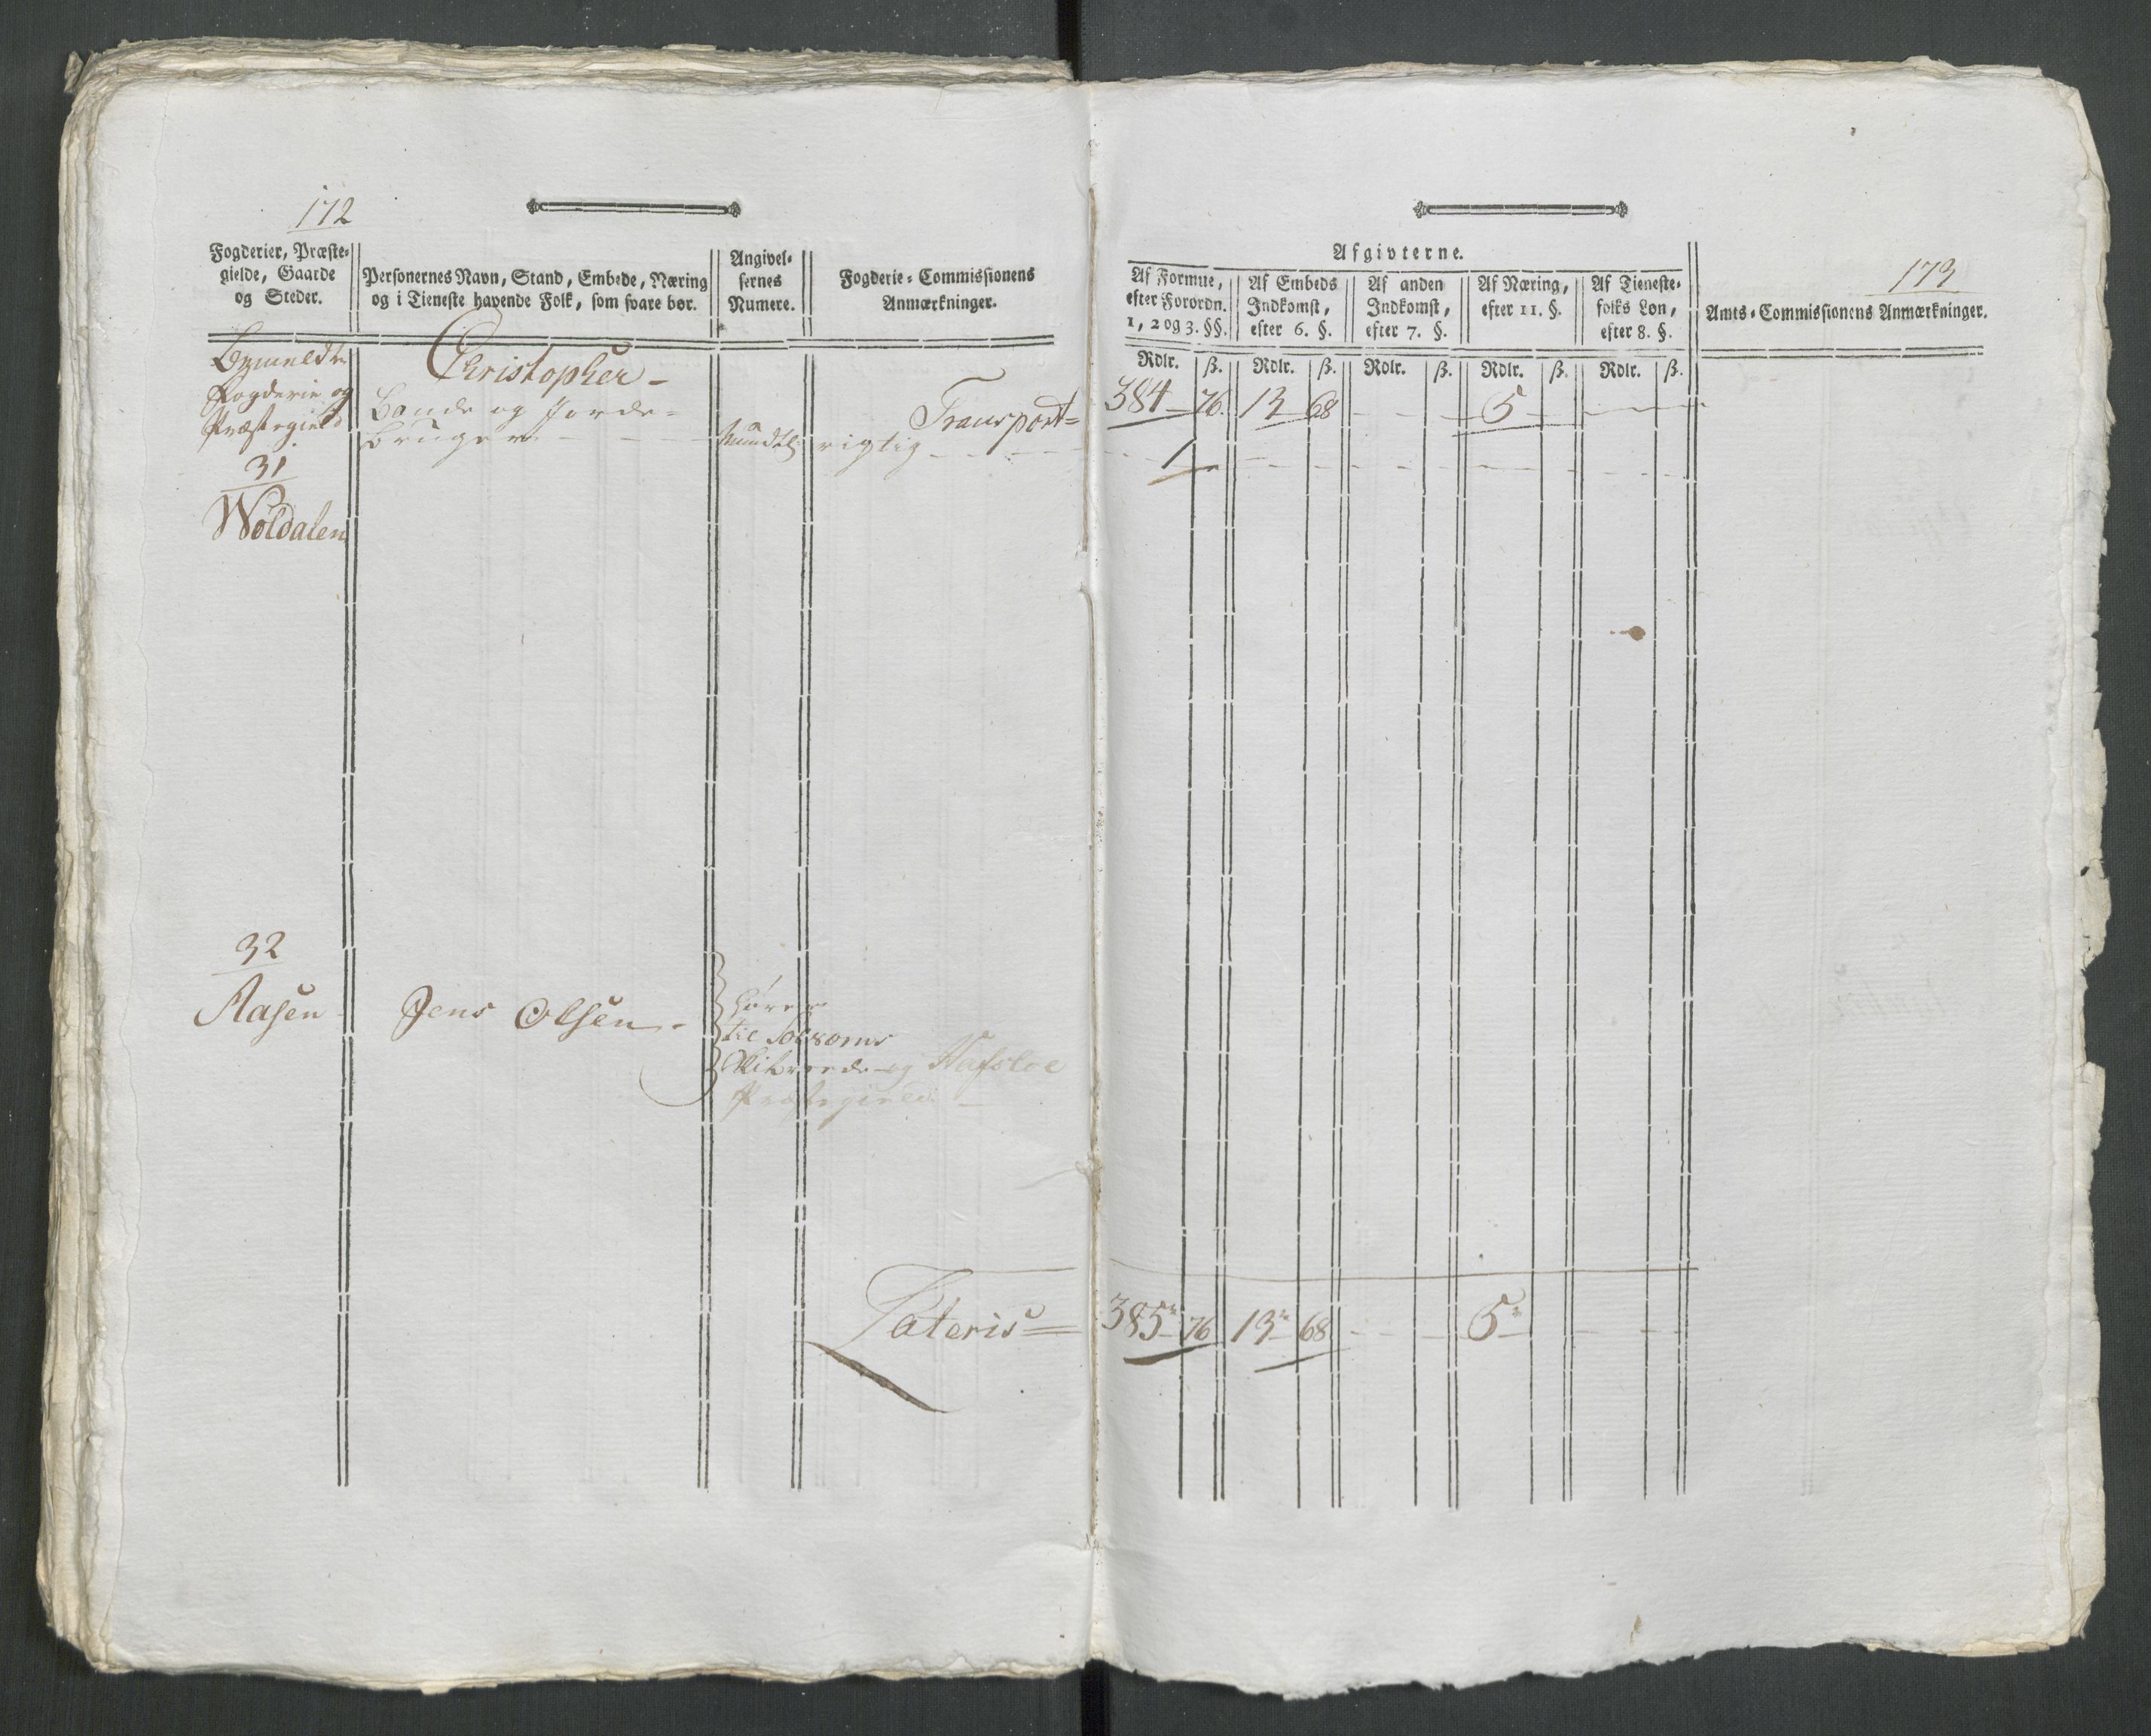 172
Fogderier, Præste-
gielde, Gaarde
og Steder.
Personernes Navn, Stand, Embede, Næring
og i Tieneste havende Folk, som svare bør.
Angivel-
sernes
Numere.
Fogderie-Commissionens
Anmærkninger.
Bemeldte
Fogderie og
Præstegield
31
Woldalen
Christopher -
Bonde og Jorde-
bruger
mundtl:
rigtig
Transport =
32
Aasen
Jens Olsen
hører
til
Skibrede og Hafsloe
Præstegield
Lateris =
173
Afgivterne.
Af Formue,
efter Forordn.
1, 2 og 3. §§.
Af Embeds
Indkomst,
efter 6. §.
Af anden
Indkomst,
efter 7. §.
Af Næring,
efter 11. §.
Af Tieneste-
folks Løn,
efter 8. §.
Amts-Commissionens Anmærkninger.
Rdlr. ß. Rdlr. ß. Rdlr. ß. Rdlr. ß. Rdlr. ß.
384 76 13 68 - - 5 - - -
1
385 76 13 68 - - 5 - - -